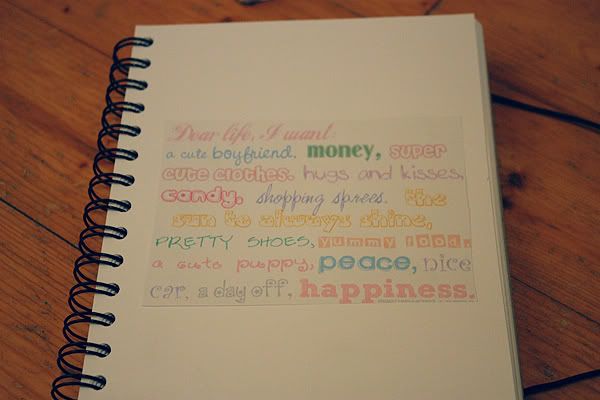 Dear life, I want:
a cute boyfriend. money, super
cute clothes. hugs and kisses,
candy. shopping sprees. the
sun to always shine,
PRETTY SHOES, yummy food.
a cute puppy, peace, nice
car, a day off, happiness.